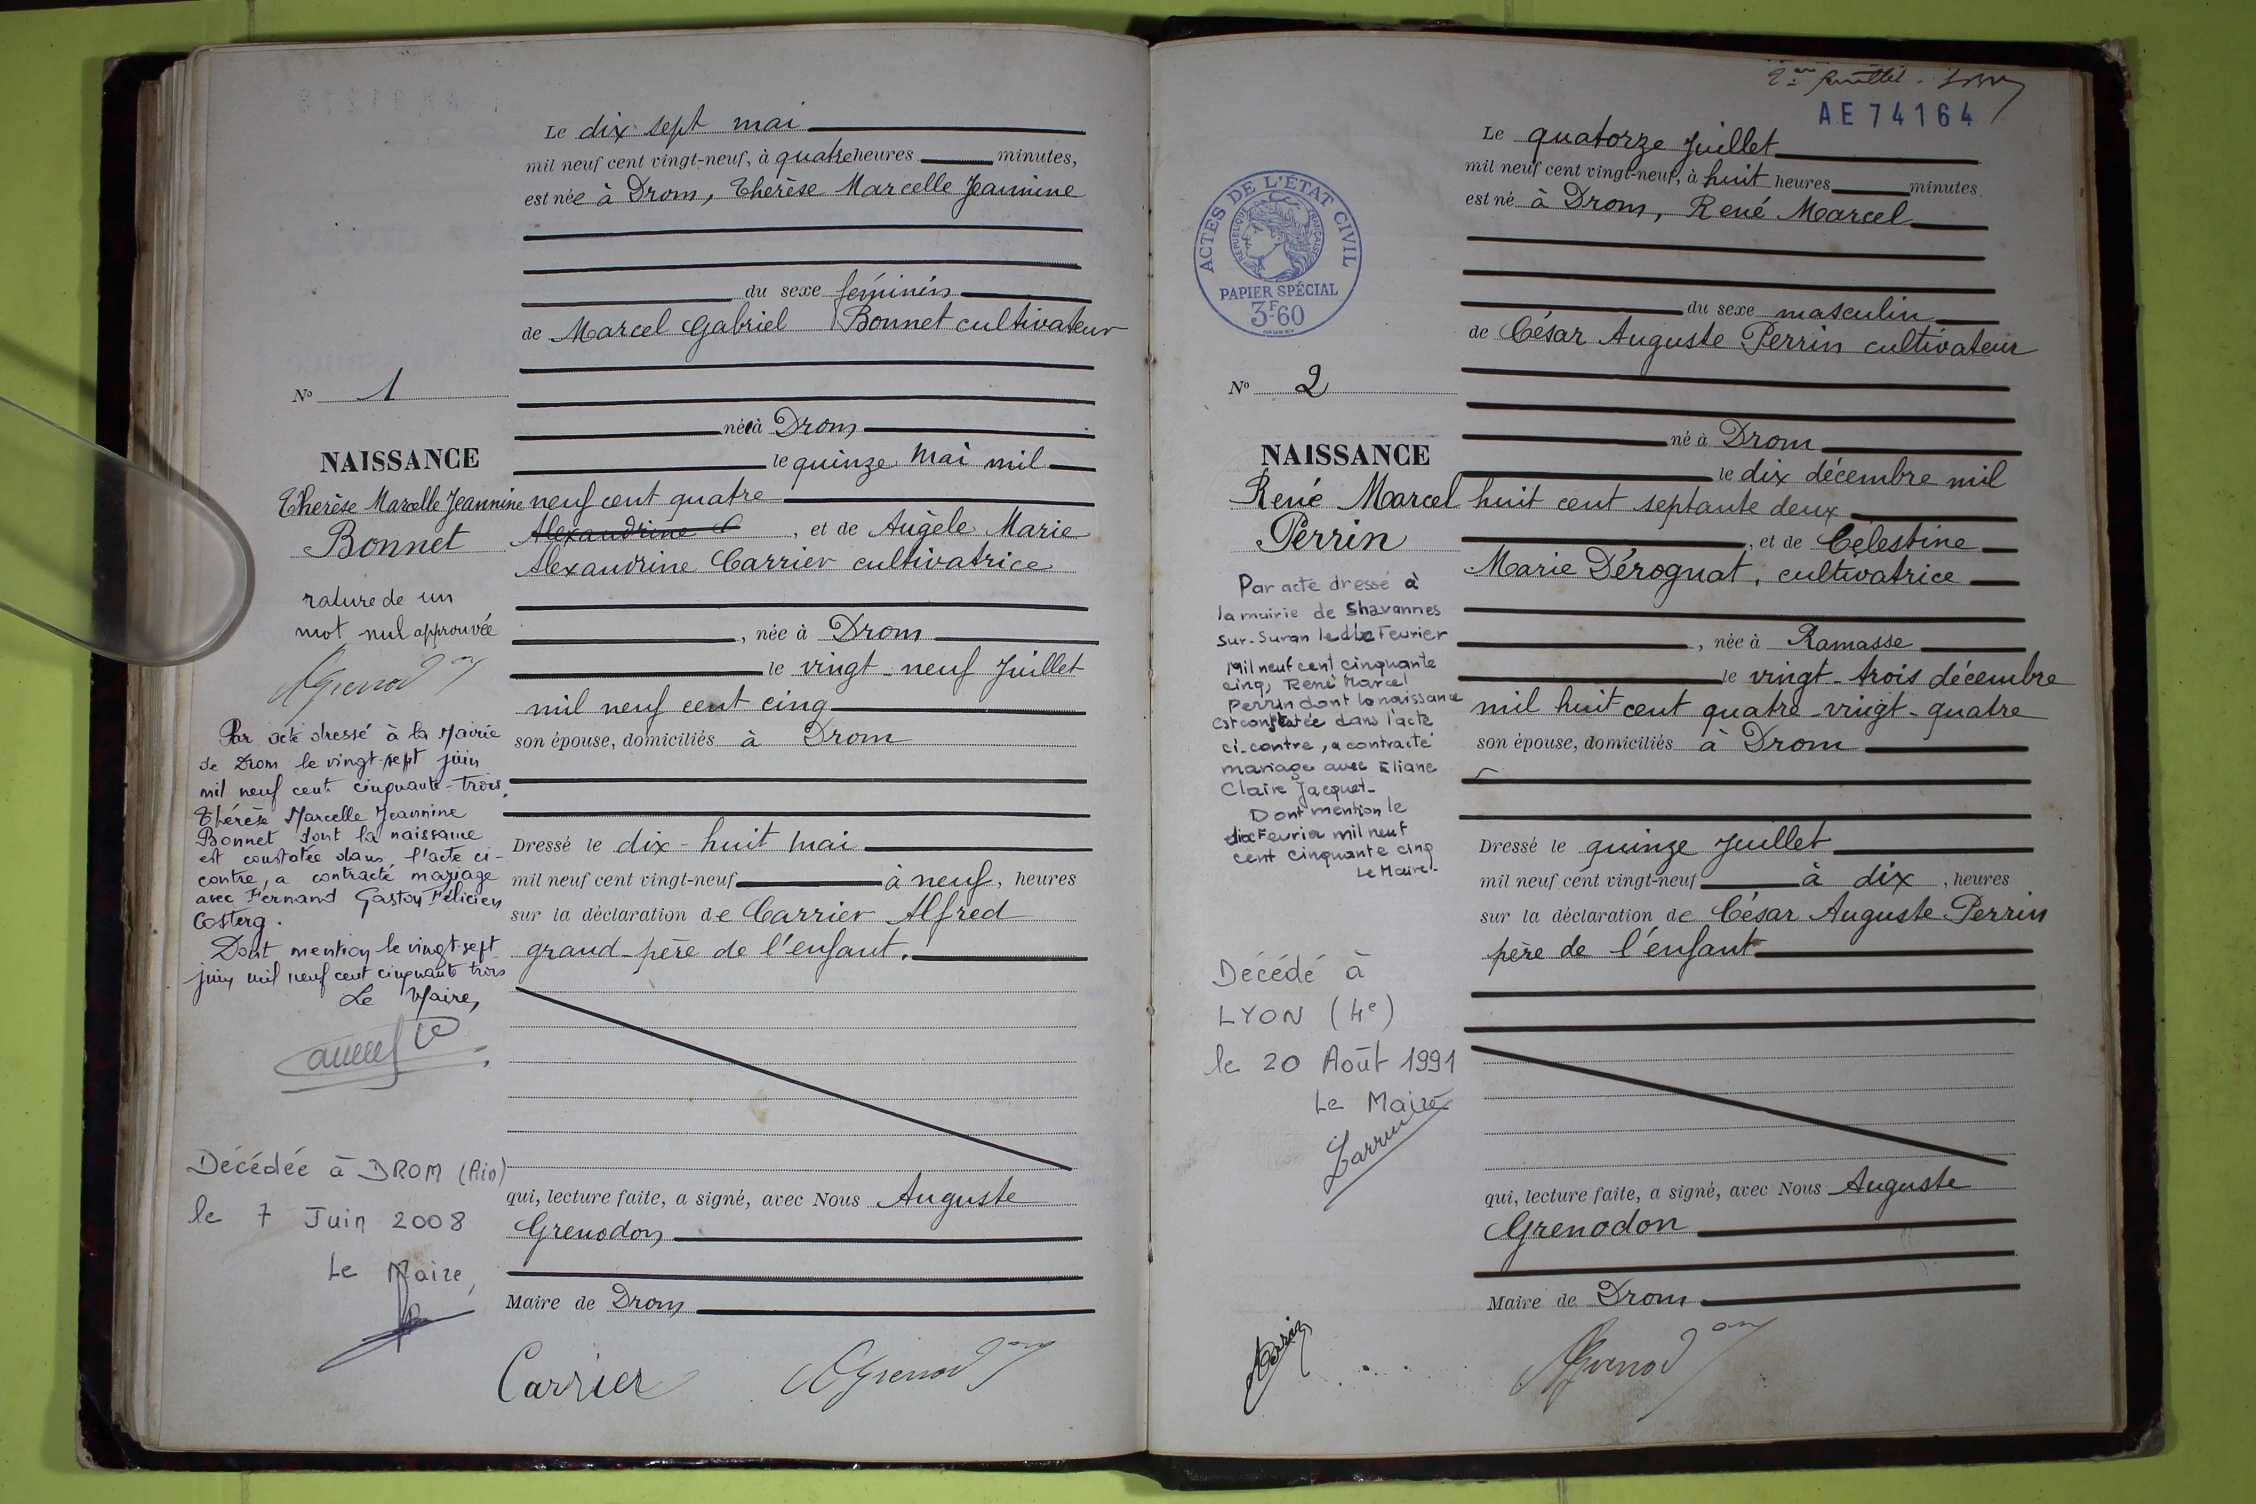 Le dix sept mai
mil neuf cent vingt-neuf, à quatre heures minutes,
est née à Drom, Thérèse Marcelle Jeannine
du sexe féminin
de Marcel Gabriel Bonnet cultivateur
No 1
né à Drom
NAISSANCE
le quinze mai mil
Thérèse Marcelle Jeannine
neuf cent quatre
Bonnet
Alexandrine C , et de Angèle Marie
Alexandrine Carrier cultivatrice
rature de un
mot nul approuvée
, née à Drom
AGrenodon
le vingt-neuf Juillet
mil neuf cent cinq
son épouse, domiciliés à Drom
Par acte dressé à la Mairie
de Drom le vingt-sept juin
mil neuf cent cinquante-trois,
Thérèse Marcelle Jeannine
Bonnet dont la naissance
est constatée dans l'acte ci-
contre, a contracté mariage
avec Fernand Gaston Félicien
Costerg.
Dont mention le vingt-sept
juin mil neuf cent cinquante trois
Le Maire,
Dressé le dix-huit mai
mil neuf cent vingt-neuf à neuf, heures
sur la déclaration de Carrier Alfred
grand-père de l'enfant.
Décédée à DROM (Ain)
le 7 Juin 2008
Le Maire,
qui, lecture faite, a signé, avec Nous Auguste
Grenodon
Maire de Drom
Carrier AGrenodon
AE 74164
Le quatorze Juillet
mil neuf cent vingt-neuf, à huit heures minutes
est né à Drom, René Marcel
ACTES DE L'ÉTAT CIVIL
RÉPUBLIQUE FRANÇAISE
PAPIER SPÉCIAL
3F60
du sexe masculin
de César Auguste Perrin cultivateur
No 2
né à Drom
NAISSANCE
le dix décembre mil
René Marcel
huit cent septante deux
Perrin
, et de Célestine
Marie Dérognat, cultivatrice
Par acte dressé à
la mairie de Chavannes
sur-Suran le dix Fevrier
Mil neuf cent cinquante
cinq, René Marcel
Perrin dont la naissance
est constatée dans l'acte
ci-contre, a contracté
mariage avec Eliane
Claire Jacquet-
Dont mention le
dix Fevrier mil neuf
cent cinquante cinq
Le Maire-
, née à Ramasse
le vingt-trois décembre
mil huit cent quatre-vingt-quatre
son épouse, domiciliés à Drom
Dressé le quinze Juillet
mil neuf cent vingt-neuf à dix , heures
sur la déclaration de César Auguste Perrin
père de l'enfant
Décédé à
LYON (4e)
le 20 Août 1991
Le Maire
qui, lecture faite, a signé, avec Nous Auguste
Grenodon
Maire de Drom
Perrin AGrenodon